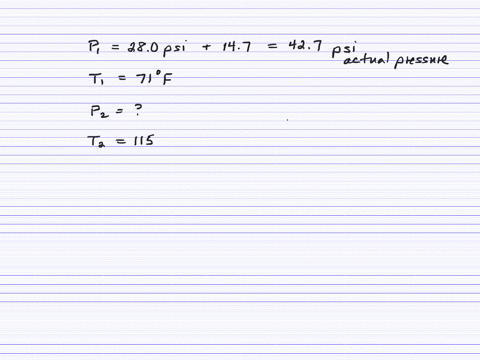 P₁ = 28.0 psi + 14.7 = 42.7 psi
actual pressure
T₁ = 71°F
P₂ = ?
T₂ = 115